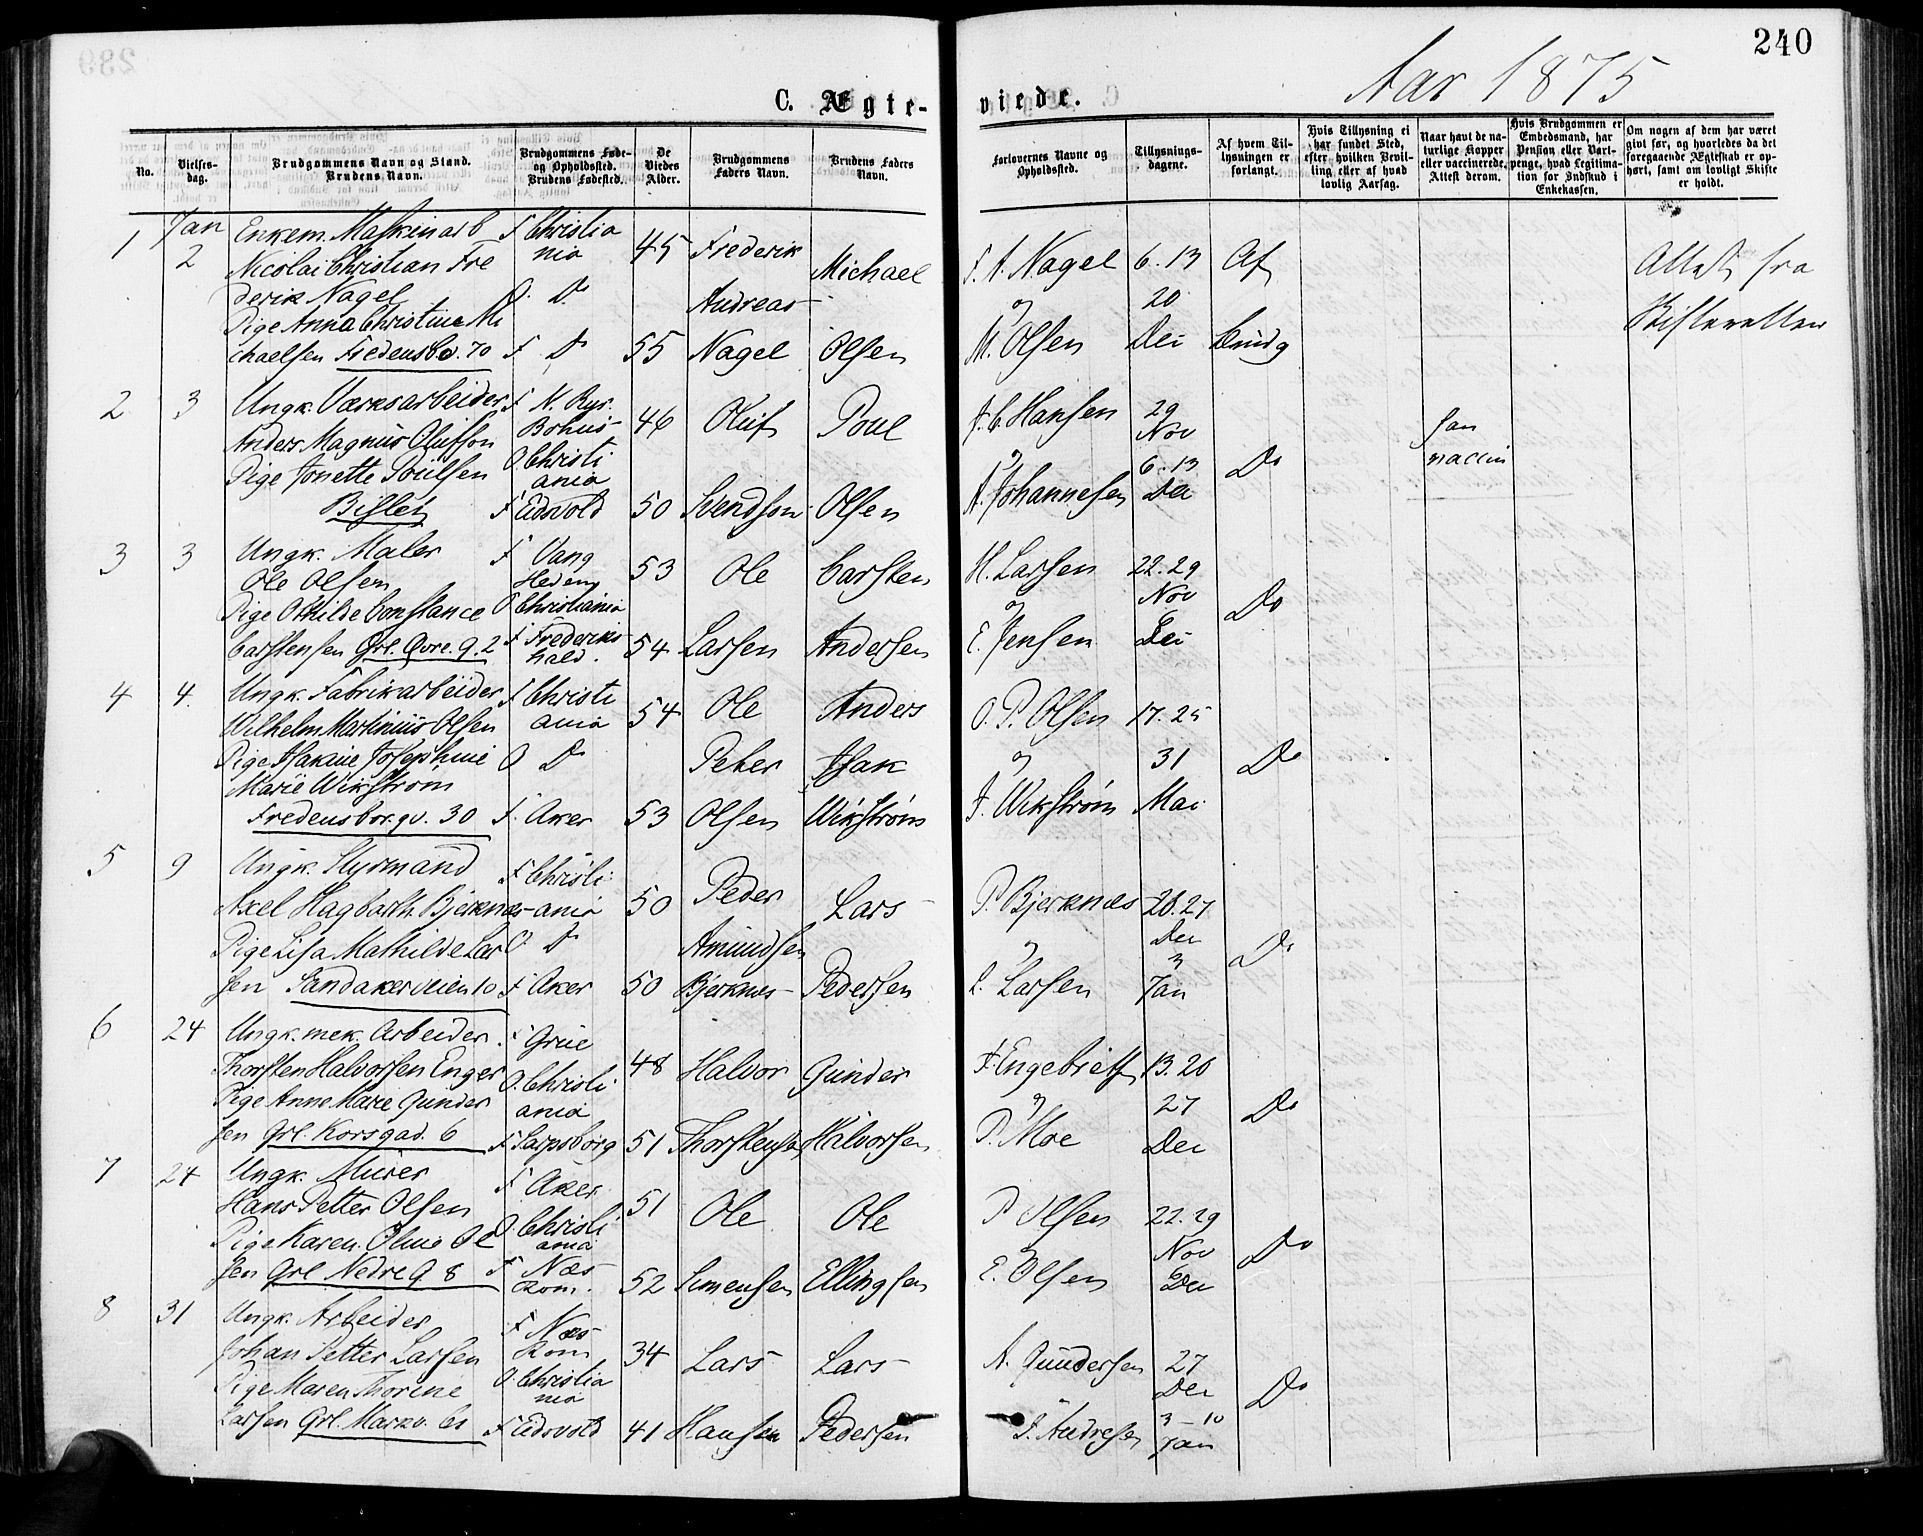 240
Aar 1875
C. Ægte-
viede.
No.
Vielses-
dag.
Brudgommens Navn og Stand.
Brudens Navn.
Brudgommens Føde-
og Opholdssted.
Brudens Fødested.
De
Viedes
Alder.
Brudgommens
Faders Navn.
Brudens Faders
Navn.
Forlovernes Navne og
Opholdssted.
Tillysnings-
dagene.
Af hvem Til-
lysningen er
forlangt.
Hvis Tillysning ei
har fundet Sted,
efter hvilken Bevil-
ling eller af hvad
lovlig Aarsag.
Naar havt de na-
turlige Kopper
eller vaccinerede,
Attest derom.
Hvis Brudgommen er
Embedsmand, har
Pension eller Vart-
penge, hvad Legitima-
tion for Indskud i
Enkekassen.
Om nogen af dem har været
givt før, og hvorledes da det
foregaaende Ægteskab er op-
hørt, samt om lovligt Skifte
er holdt.
1
Jan
2
Enkem. Maskinarb
Nicolai Christian Fre
derik Nagel
Pige Anna Christine Mi
chaelsen Fredensb.v. 70
F Christia
nia
O. Do
F Do
45
55
Frederik
Andreas
Nagel
Michael
Olsen
F. A. Nagel
og
M. Olsen
6. 13
20
Dec
Af
Brudg
Attest fra
Skifteretten
2
3
Ungk. Værksarbeider
Anders Magnus Olufson
Pige Jonette Poulsen
Bislet
F N. Ryr.
Bohus
O Christi
ania
F Eidsvold
46
50
Oluf
Svendson
Poul
Olsen
J. C. Hansen
og
A. Johannesen
29
Nov
6. 13
Dec
Do
Jan
vaccin
3
3
Ungk. Maler
Ole Olsen
Pige Othilde Constance
Carstensen Grl. Øvre. G. 2
F Vang
Hedem
O Christiania
F Frederiks
hald.
53
54
Ole
Larsen
Carsten
Andersen
H. Larsen
og
E. Jensen
22. 29
Nov
6
Dec
Do
4
4.
Ungk. Fabrikarbeider
Wilhelm Martinius Olsen
Pige Isakine Josephine
Marie Wikstrøm
Fredensborgv. 30
F Christi
ania
O Do
F. Aker
54
53
Ole
Peter
Olsen
Anders
Isak
Wikstrøm
O. P. Olsen
og
J. Wikstrøm
17. 25
31
Mai
Do
5
9
Ungk. Styrmand
Axel Hagbarth Bjerknæs
Pige Lisa Mathilde Lar
sen Sandakerveien 10
F Christi
ania
O. Do
F Aker
50
50
Peder
Amundsen
Bjerknes
Lars
Pedersen
P. Bjerknæs
og
L. Larsen
20. 27
Dec
3
Jan
Do
6
24
Ungk. mek. Arbeider
Thorsten Halvorsen Enger
Pige Anne Marie Gunder
sen Grl. Korsgad. 6
F Grue
O. Christi
ania
F Sarpsborg
48
51
Halvor
Thorstensen
Gunder
Halvorsen
F. Engebrets
og
P. Moe
13. 20
27
Dec
Do
7
24
Ungk. Murer
Hans Petter Olsen
Pige Karen Oline Ol
sen Grl Nedre G 8
F Aker
O. Christi
ania
F Næs
Rom.
51
52
Ole
Simensen
Ole
Ellingsen
P Olsen
E. Olsen
22. 29
Nov
6
Dec
Do
8
31
Ungk. Arbeider
Johan Petter Larsen
Pige Maren Thorine
Larsen Grl. Markv. 61
F Næs
Rom
O. Christia
nia
F Eidsvold
34
41
Lars
Hansen
Lars
Pedersen
A. Gundersen
J. Andresen
27
Dec
3-10
Jan
Do